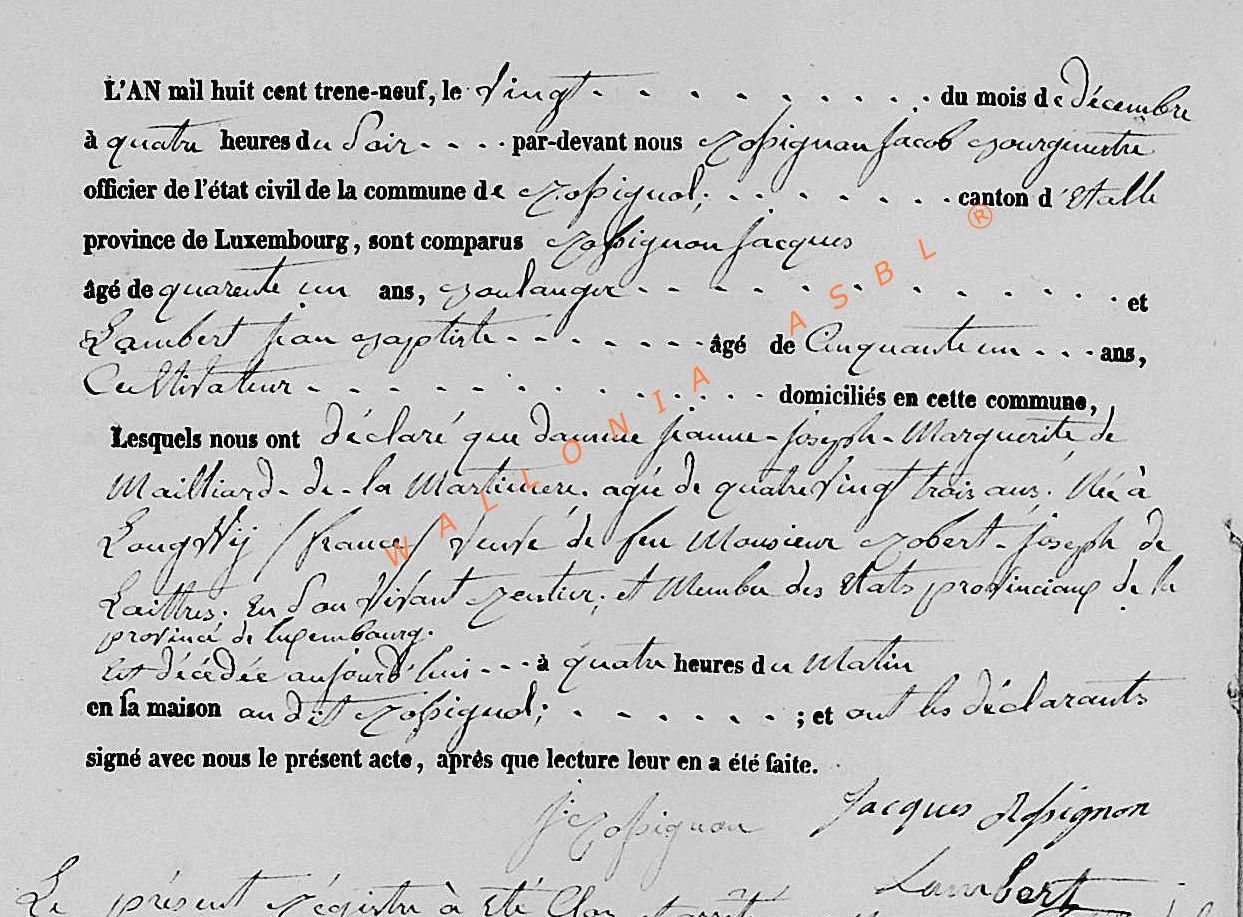 L'AN mil huit cent trene-neuf, le vingt - - - - - - - - - du mois de décembre
à quatre heures du Soir - - - - par-devant nous Rossignon Jacob Bourgmestre
officier de l'état civil de la commune de Rossignol; - - - - - - - canton d'Etalle
province de Luxembourg, sont comparus Rossignon Jacques
âgé de quarente un ans, Boulanger - - - - - - - - - - - - - et
Lambert Jean Baptiste - - - - - - - âgé de Cinquante un - - - ans,
Cultivateur - - - - - - - - - - - - - domiciliés en cette commune,
Lesquels nous ont déclaré que damme Jeanne-Joseph-Marguerite de
Mailliard-de-la Martiniere. agée de quatre vingt trois ans. Née à
LongWÿ / france / Veuve de feu Monsieur Robert-Joseph de
Laittres. En Son Vivant Rentier; et Membre des Etats provinciaux de la
province de luxembourg.
Est décédée aujourd'hui - - - à quatre heures du Matin
en sa maison au dit Rossignol; - - - - - - ; et ont les déclarants
signé avec nous le présent acte, après que lecture leur en a été faite.
J: Rossignon Jacques Rossignon
Lambert
Le présent Régistre à Eté Clos et
WALLONIA ASBL ®